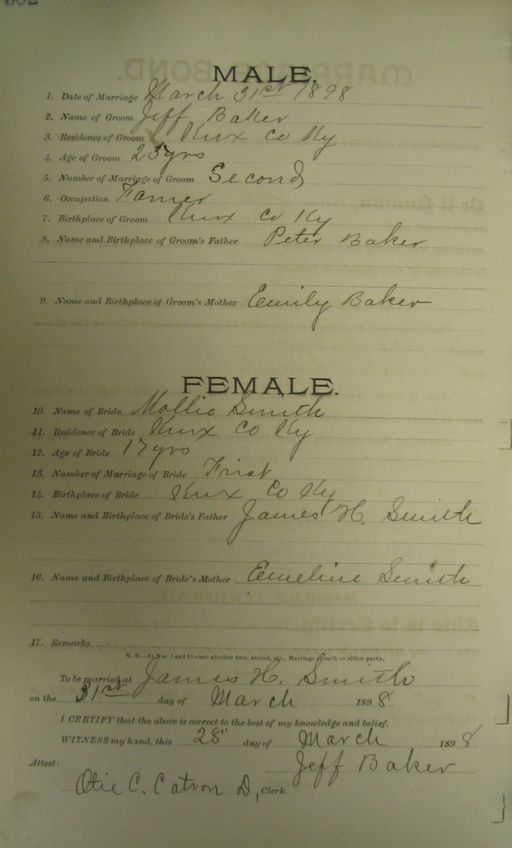 MALE.
1. Date of Marriage March 31st 1898
2. Name of Groom Jeff Baker
3. Residence of Groom Knx Co Ky
4. Age of Groom 23yrs
5. Number of Marriage of Groom Second
6. Occupation Farmer
7. Birthplace of Groom Knx Co Ky
8. Name and Birthplace of Groom's Father Peter Baker
9. Name and Birthplace of Groom's Mother Emily Baker
FEMALE.
10. Name of Bride Mollie Smith
11. Residence of Bride Knx Co Ky
12. Age of Bride 17yrs
13. Number of Marriage of Bride First
14. Birthplace of Bride Knx Co Ky
15. Name and Birthplace of Bride's Father James H. Smith
16. Name and Birthplace of Bride's Mother Emeline Smith
17. Remarks
N. B.—At Nos. 5 and 13 state whether first, second, etc., Marriage of each or either party.
To be married at James H. Smith
on the 31st day of March 1898
I CERTIFY that the above is correct to the best of my knowledge and belief.
WITNESS my hand, this 28" day of March 1898
Jeff Baker
Attest:
Otie C. Catron D, Clerk